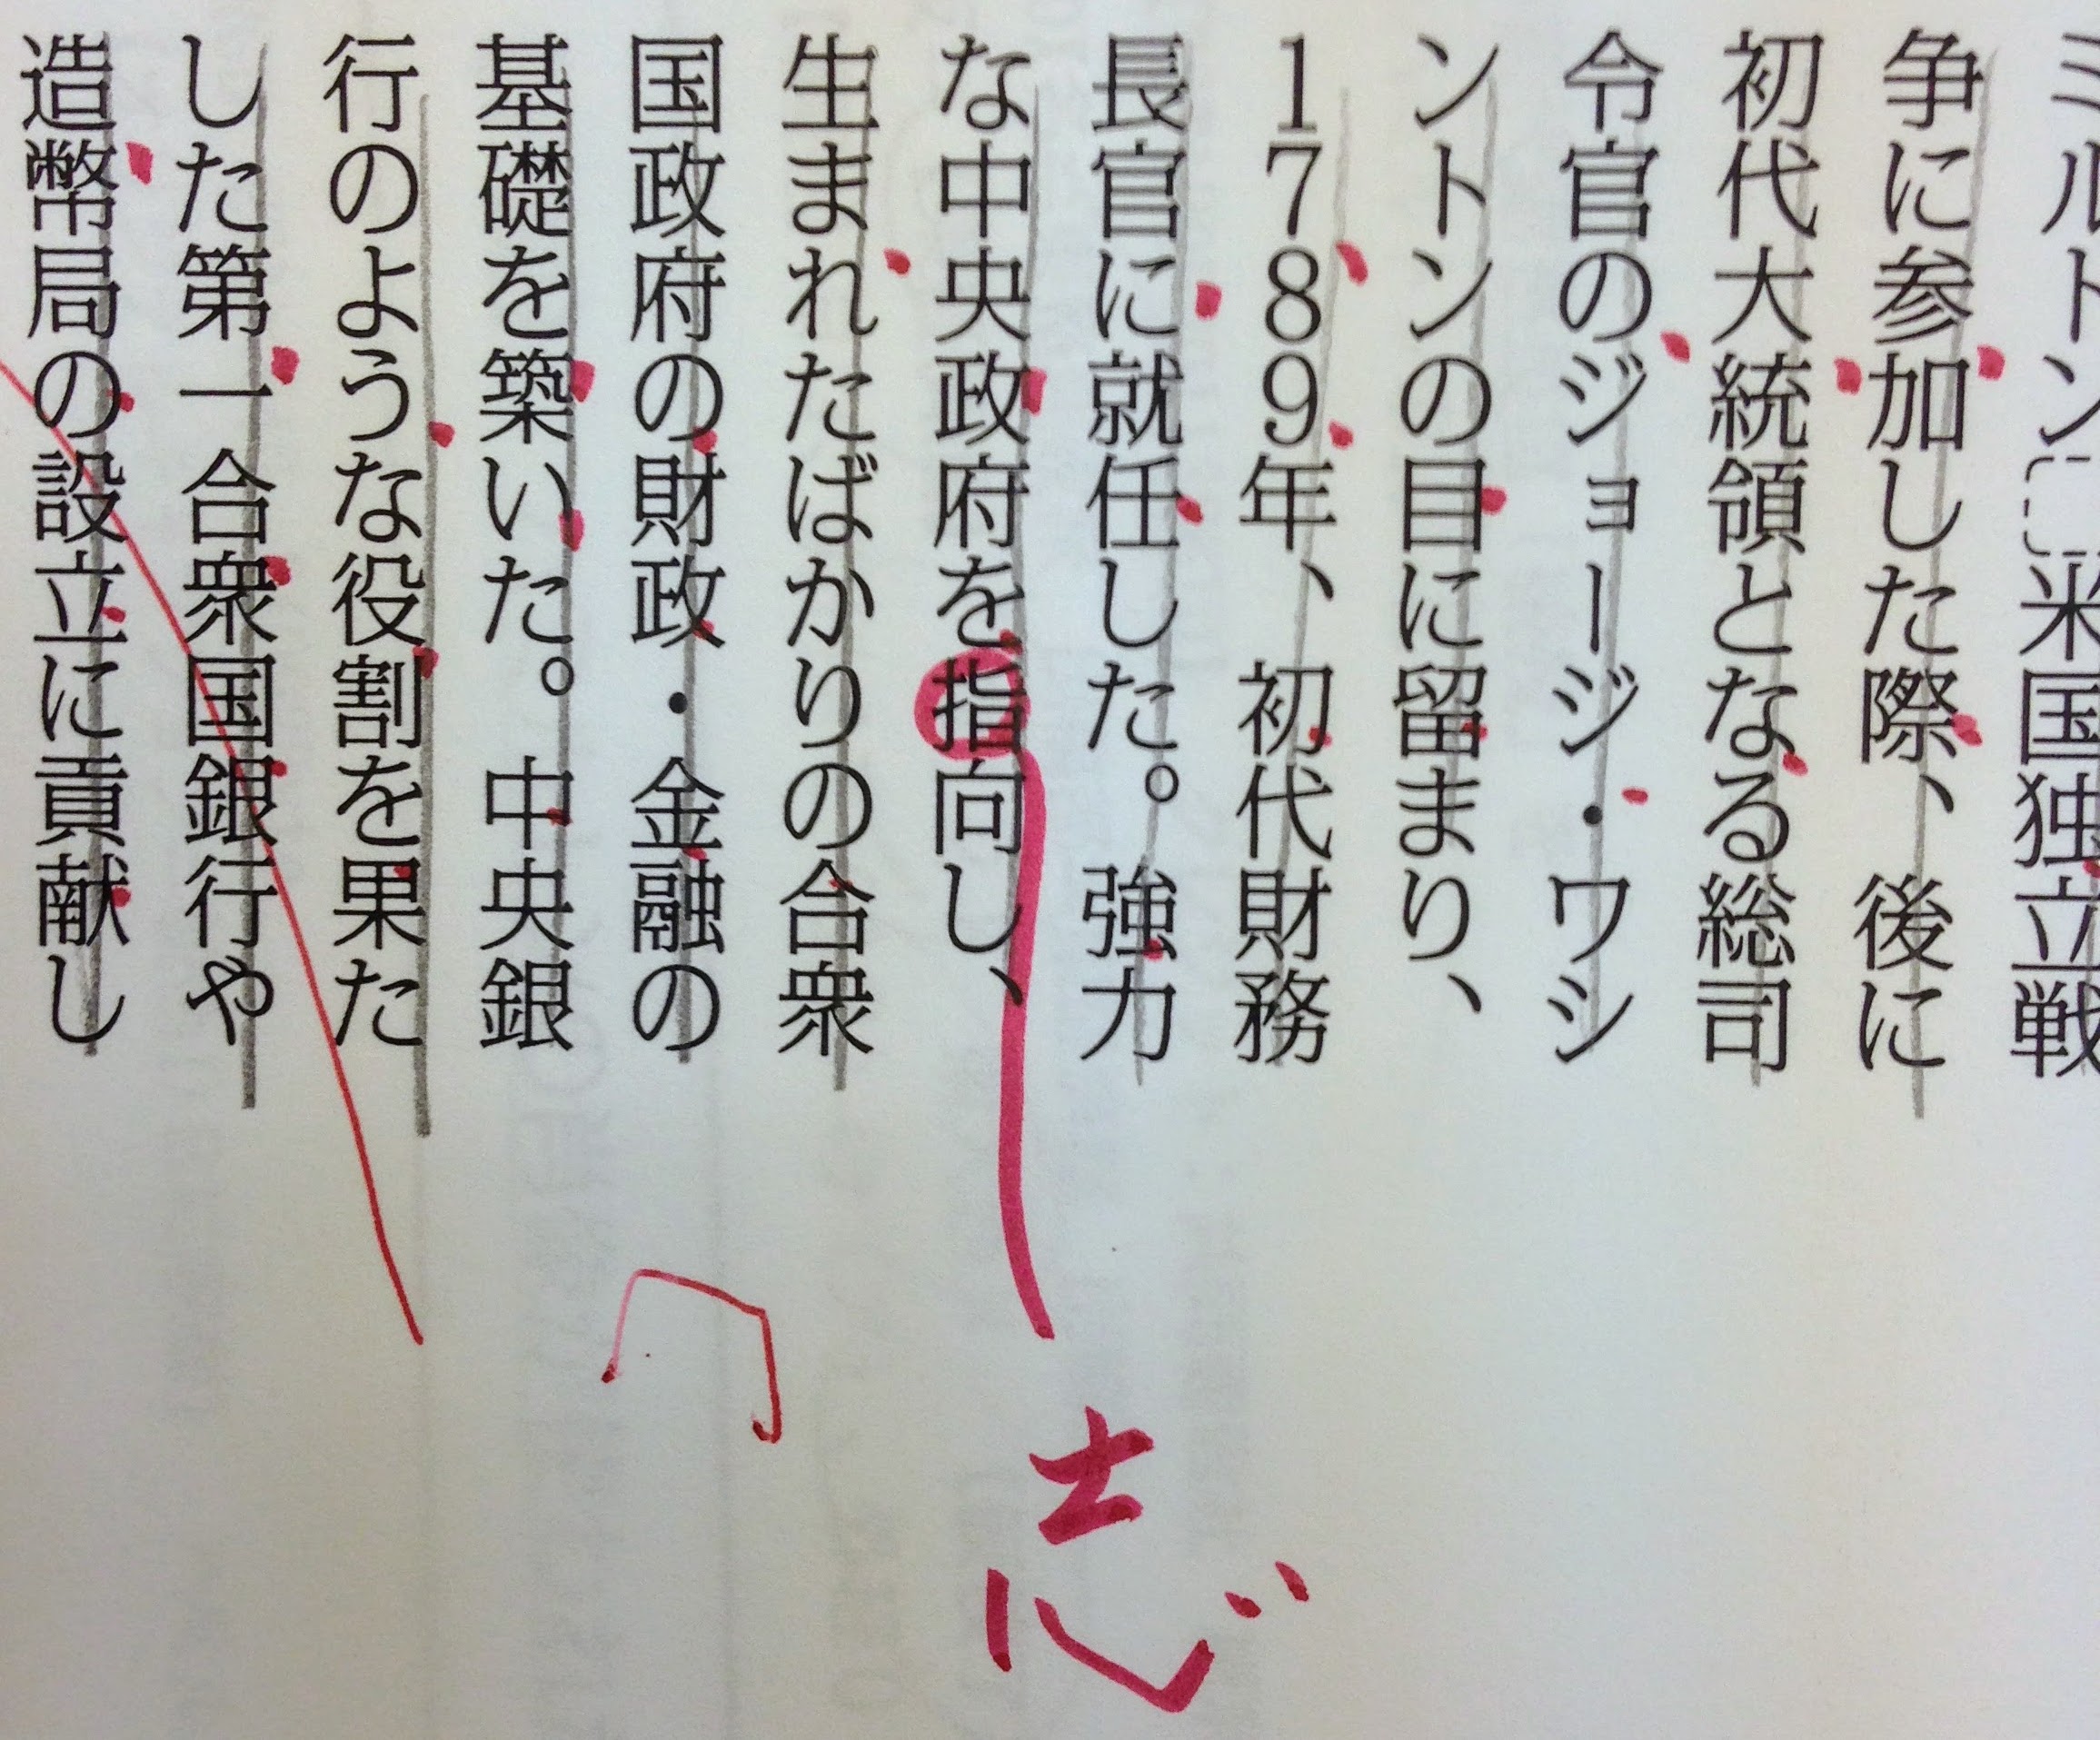 ミルトン 米国独立戦
争に参加した際、後に
初代大統領となる総司
令官のジョージ・ワシ
ントンの目に留まり、
1789年、初代財務
長官に就任した。強力
な中央政府を指向し、
生まれたばかりの合衆
国政府の財政・金融の
基礎を築いた。中央銀
行のような役割を果た
した第一合衆国銀行や
造幣局の設立に貢献し
志